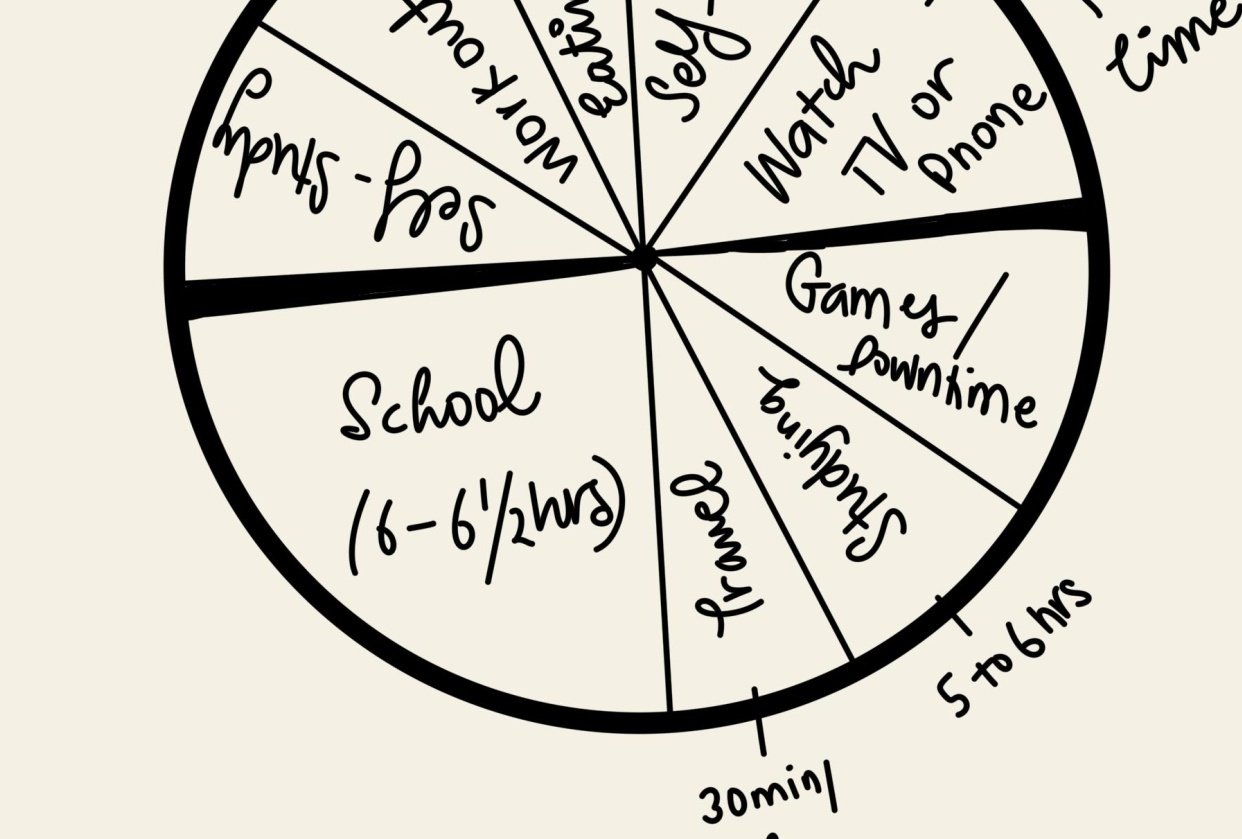 Self-study
Workout
eati
Self-
Watch
TV or
phone
time
Games/
Downtime
Studying
Travel
School
(6-6 1/2hrs)
5 to 6 hrs
30min/